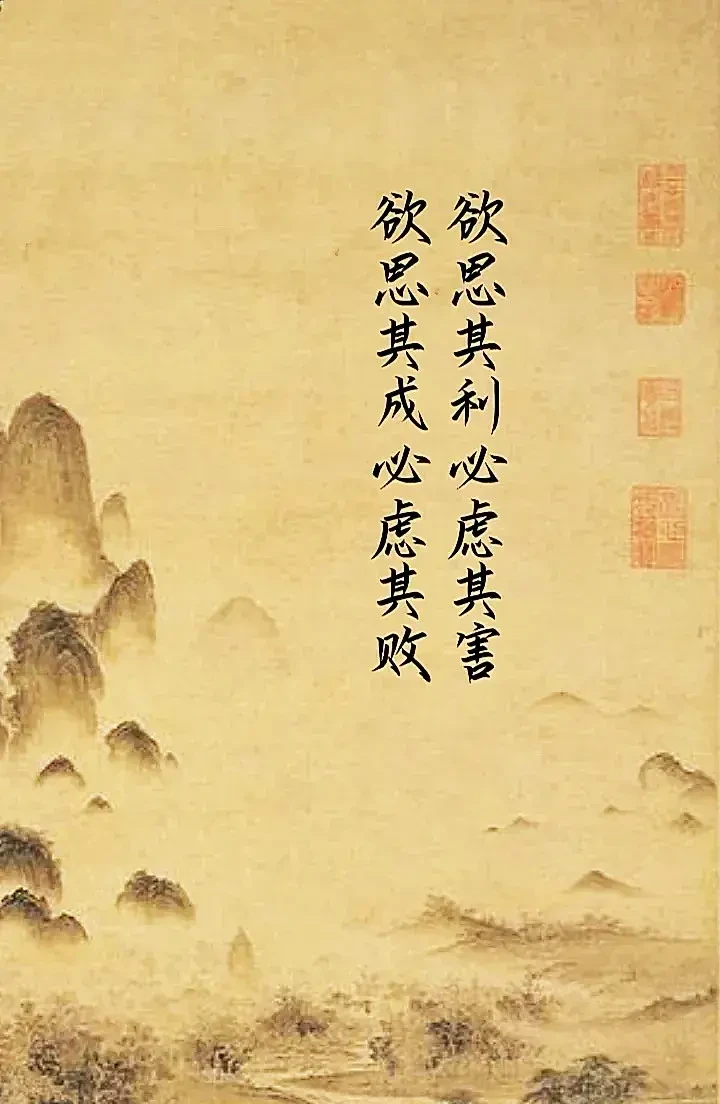 欲思其利必虑其害
欲思其成必虑其败